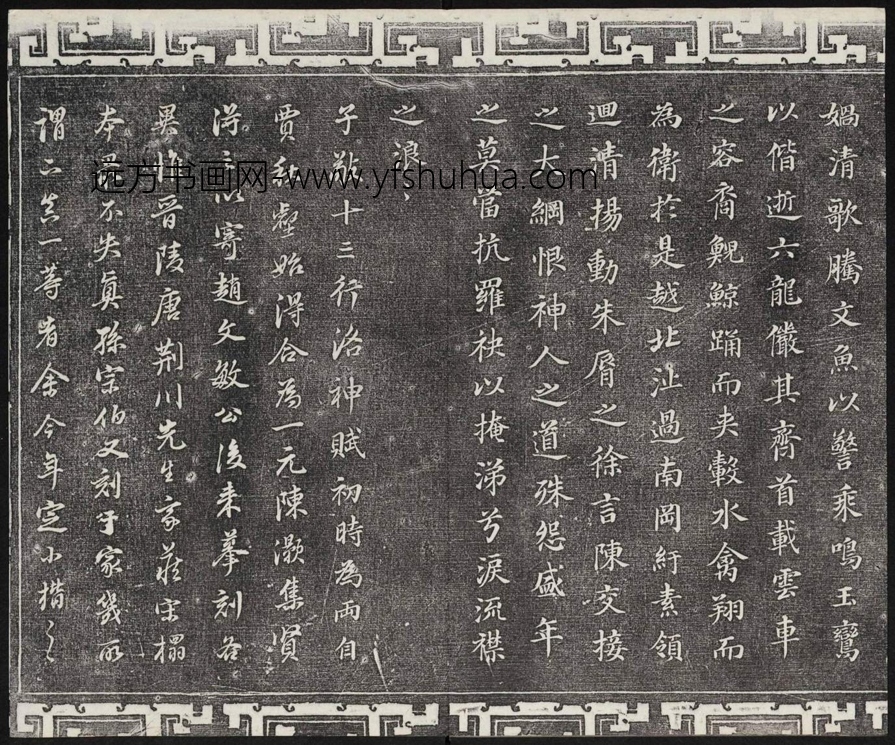 媧清歌騰文魚以警乘鳴玉鸞
以偕逝六龍儼其齊首載雲車
之容裔鯨踊而夾轂水禽翔而
為衛於是越北沚過南岡紆素領
迴清揚動朱脣之徐言陳交接
之大綱恨神人之道殊怨盛年
之莫當抗羅袂以掩涕兮淚流襟
之浪〻
子敬十三行洛神賦初時為兩自
賈秋壑始得合為一元陳灝集賢
得之以寄趙文敏公後来摹刻各
異惟晉陵唐荆川先生家藏宋搨
本不失真孫宗伯又刻于家幾所
謂下真一等者余今年定小楷
远方书画网-www.yfshuhua.com